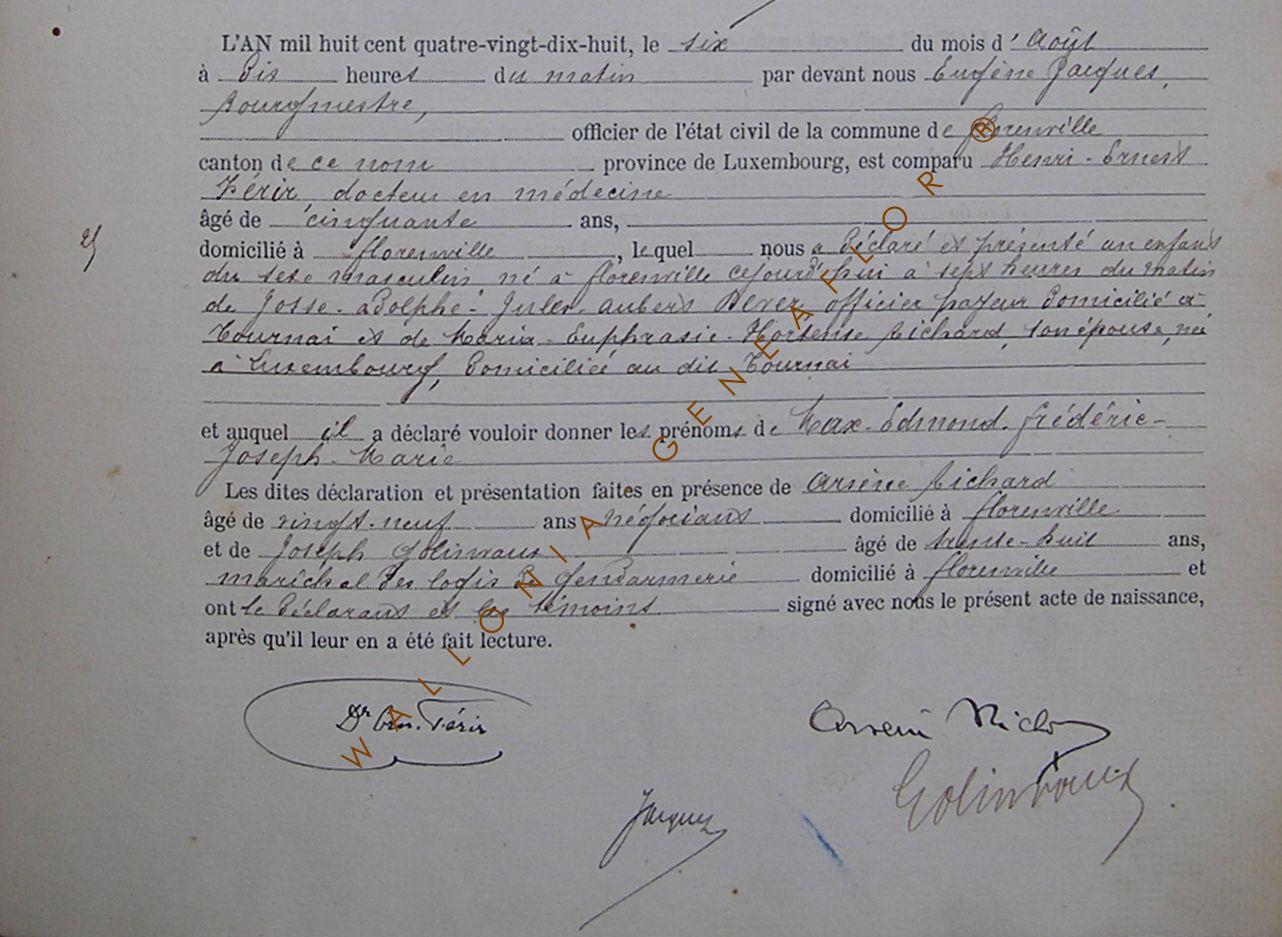 L'AN mil huit cent quatre-vingt-dix-huit, le six du mois d'Août
à dix heures du matin par devant nous Eugène Jacques,
Bourgmestre,
officier de l'état civil de la commune de Florenville
canton de ce nom province de Luxembourg, est comparu Henri-Ernest
Férir, docteur en médecine
âgé de cinquante ans,
domicilié à Florenville, lequel nous a déclaré et présenté un enfant
du sexe masculin, né à Florenville cejourd'hui à sept heures du matin
de Josse-Adolphe-Jules-Aubert officier payeur domicilié à
Tournai et de Maria-Euphrasie-Hortense Richard, son épouse, née
à Luxembourg, domiciliée au dit Tournai
et auquel il a déclaré vouloir donner les prénoms de Max-Edmond-Frédéric-
Joseph-Marie
Les dites déclaration et présentation faites en présence de Arsène Richard
âgé de vingt-neuf ans négociant domicilié à Florenville
et de Joseph Golinvaux âgé de trente-huit ans,
maréchal des logis de Gendarmerie domicilié à Florenville et
ont le déclarant et les témoins signé avec nous le présent acte de naissance,
après qu'il leur en a été fait lecture.
Dr Ern. Férir
Arsène Richard
Golinvaux
Jacques
WALLONIA GENEAFLOR ®